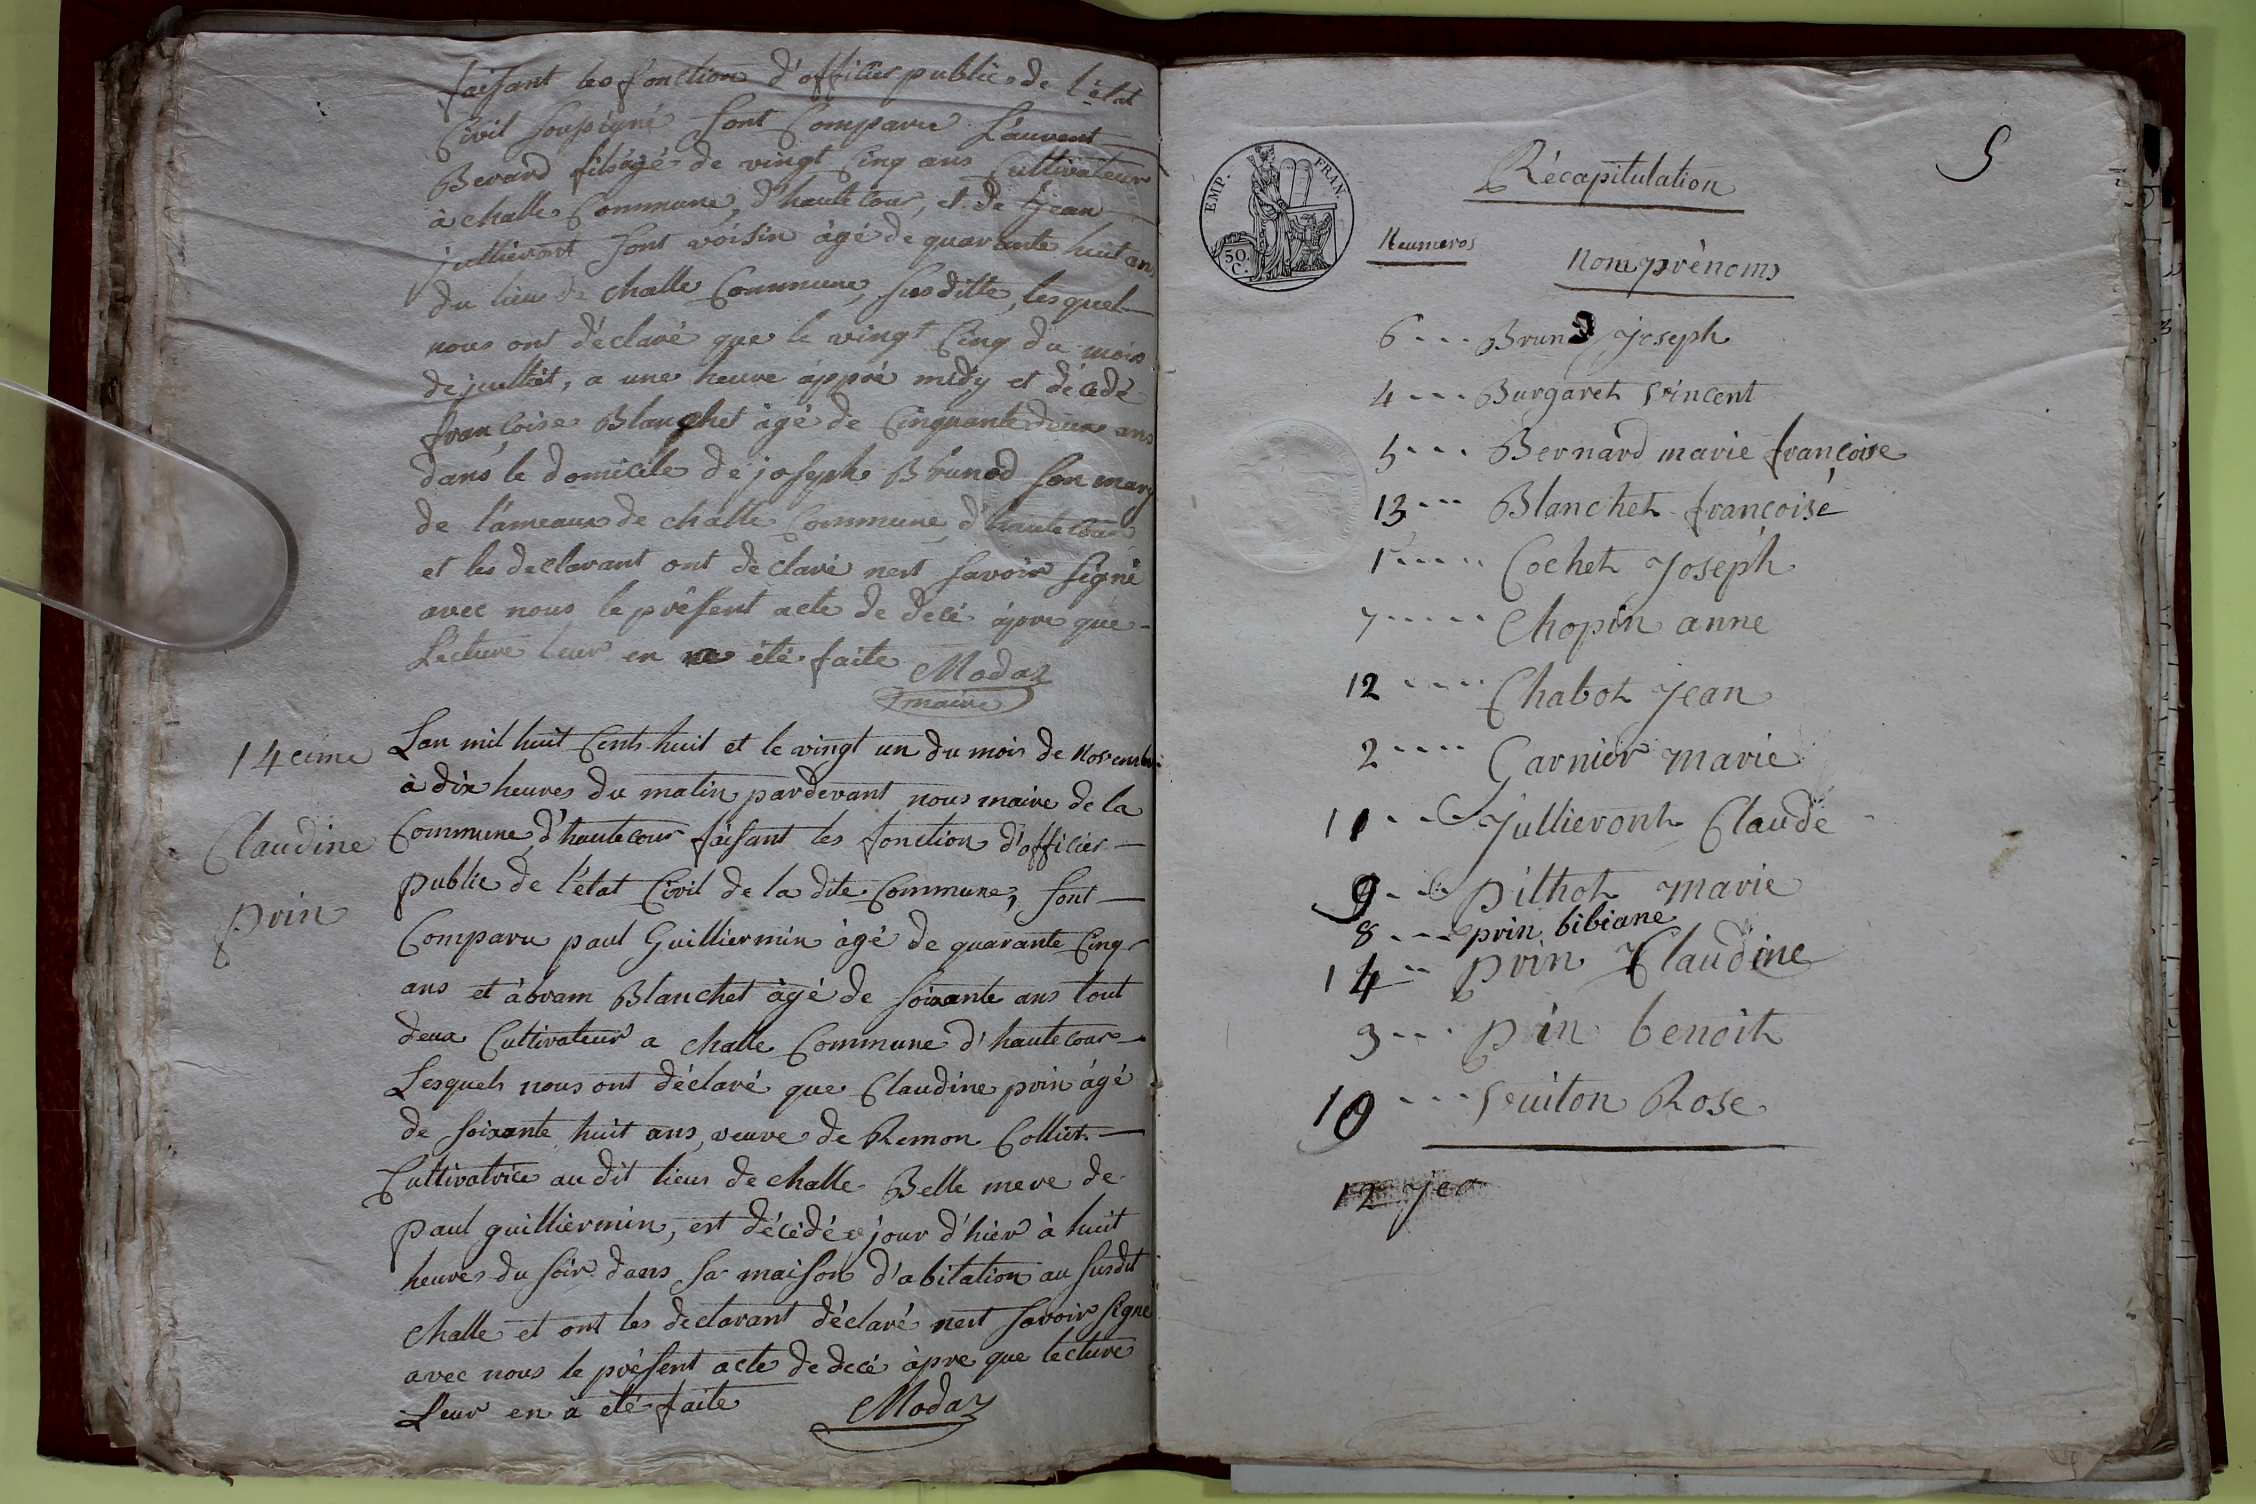 faisant les fonction d'officier public de l'état
Civil soussigné sont Comparu Lauvent
Berard fils âgé de vingt Cinq ans Cultivateur
à challe Commune, d'hautecour, et de Jean
jullieront sont voisin àgé de quarante huit ans
du lieu de challe Commune, susditte, lesquel
nous ont déclaré que le vingt Cinq du mois
de juillet, a une heure àppré midy et décedé
françoise Blanchet àgé de Cinquante deux ans
dans le domicile de joseph Brunod son mary
de l'ameaux de challe Commune d'hautecour
et les declarant ont declaré nest savoir signé
avec nous le présent acte de decé àpre que
Lecture leur en a été faite Modaz
maire
14eime
Claudine
prin
Lan mil huit Cents huit et le vingt un du mois de Novembre
à dix heures du matin pardevant nous maire de la
Commune, d'hautecour faisant les fonction d'officier
public de l'état Civil de la dite Commune, sont
Comparu paul Guilliermin àgé de quarante Cinq
ans et àbram Blanchet àgé de soixante ans tout
deux Cultivateur a challe Commune d'hautecour
Lesquels nous ont déclaré que Claudine prin àgé
de soixante huit ans, veuve de Remon Colliet
Cultivatrice au dit lieux de challe Belle mere de
paul guilliermin, est décédé jour d'hier à huit
heures du soir dans sa maison d'abitation au susdit
challe et ont les declarant déclaré nest savoir signe
avec nous le présent acte de decé àpre que lecture
Leur en à été faite Modaz
5
EMP. FRAN.
50. C.
Récapitulation
Neumeros Nom prénoms
6 Brunod Joseph
4 Burgaret Vincent
5 Bernard marie françoise
13 Blanchet françoise
1 Cochet Joseph
7 Chopin anne
12 Chabot Jean
2 Garnier marie
11 Jullieront Claude
9 pilhot marie
8 prin bibiane
14 prin Claudine
3 pin benoit
10 Vuiton Rose
12 Jea